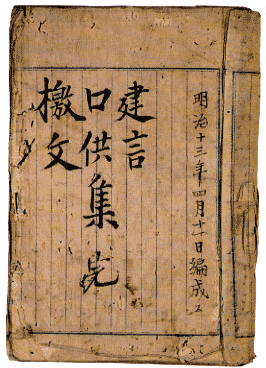 明治十三年四月十一日編成
建言
口供集 完
檄文